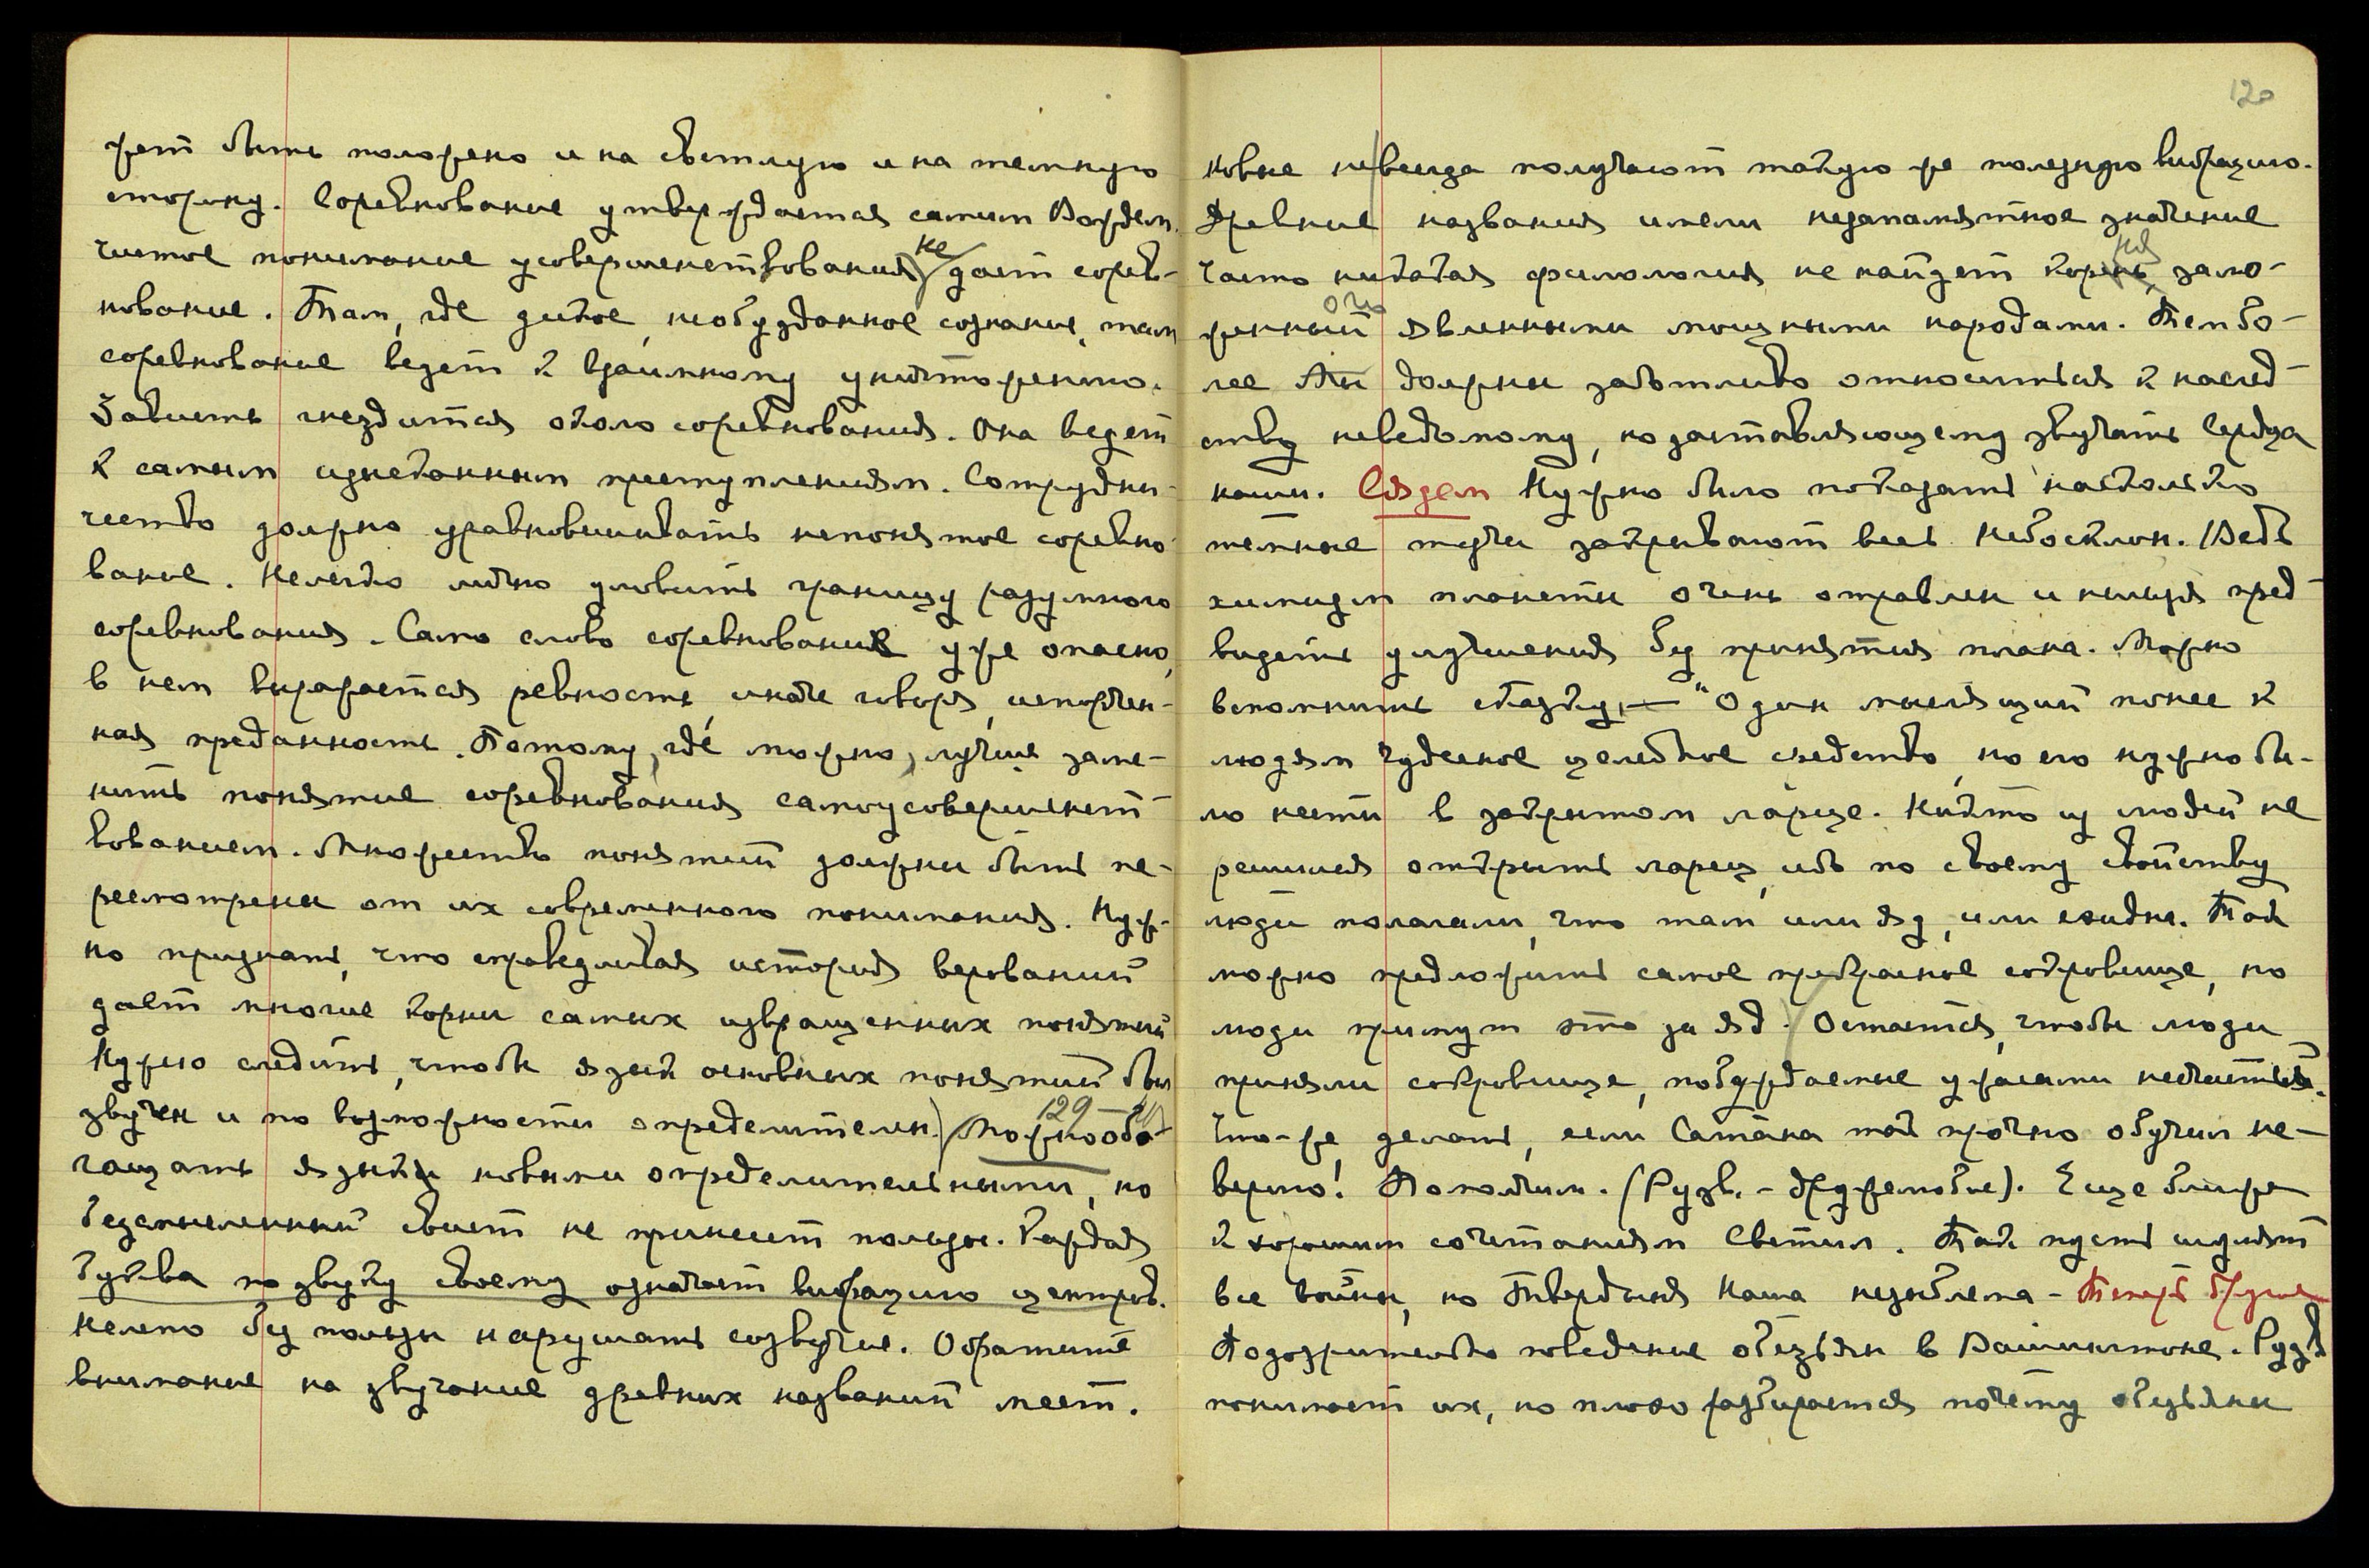 жет быть положено и на светлую и на темную
сторону. Соревнование утверждается самим Вождем.
чистое понимание усовершенствования не дает сорев-
нование. Там, где дикое, необузданное сознание, там
соревнование ведет к взаимному уничтожению.
Зависть гнездится около соревнования. Она ведет
к самым изысканным преступлениям. Сотрудни-
чество должно уравновешивать непонятое соревно-
вание. Нелегко лично уловить границу разумного
соревнования. Само слово соревнование уже опасно,
в нем выражается ревность, иначе говоря, испорчен-
ная преданность. Потому, где можно, лучше заме-
нить понятие соревнования самоусовершенст-
вованием. Множество понятий должны быть пе-
ресмотрены от их современного понимания. Нуж-
но признать, что справедливая история верований
дает многие корни самых извращенных понятий
Нужно следить, чтобы язык основных понятий был
звучен и по возможности определителен.) 129 – Можно обо-
гащать языки новыми определительными, но
безсмысленный свист не принесет пользы. Каждая
буква по звуку своему означает вибрацию центров.
Нелепо без пользы нарушать созвучие. Обратите
внимание на звучание древних названий мест.
120
новые не всегда получают такую же полезную вибрацию.
Древние названия имели незапамятное значение
часто никакая филология не найдет корень, ня зало-
женный ого явленными мощными народами. Тем бо-
лее Мы должны заботливо относиться к наслед-
ству неведомому, но заставляющему звучать сердца
наши. Сяздем Нужно было показать насколько
темные тучи закрывают весь небосклон. Ведь
химизм планеты очень отравлен и нельзя пред-
видеть улучшения без принятия плана. Можно
вспомнить сказку, — "Один мыслящий понес к
людям чудесное целебное средство, но его нужно бы-
ло нести в закрытом ларце. Никто из людей не
решился открыть ларец, ибо по своему свойству
люди полагали, что там или яд, или ехидна. Так
можно предложить самое прекрасное сокровище, но
люди примут это за яд. Остается, чтобы люди
приняли сокровище, побуждаемые ужасами несчастья.
Что-же, делать, если Сатана так прочно обучил не-
верию! Помолчим. (Рузв. - дружелюбие). Еще ближе
к хорошим сочетаниям Светил. Так пусть шумят
все войны, но Твердыня Наша незыблема - Теперь другое
Подозрительно поведение обезьян в Вашингтоне. Рузв
понимает их, но плохо разбирается почему обезьяны